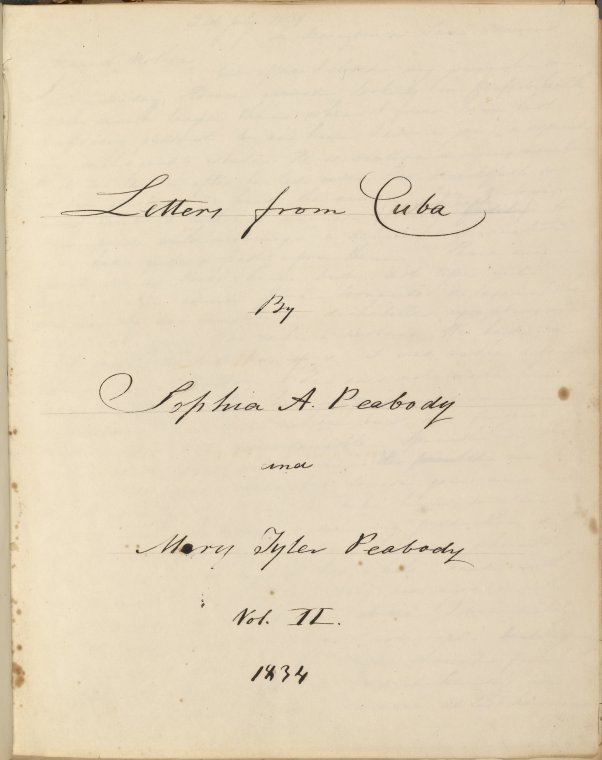 Letters from Cuba
By
Sophia A. Peabody
and
Mary Tyler Peabody
Vol. II.
1834